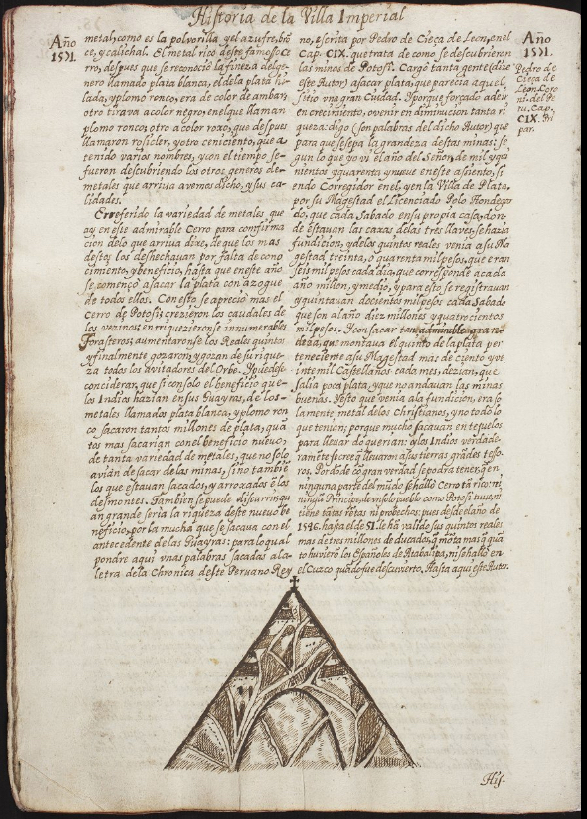 Historia de la Villa Imperial
Año
1571.
metal, como es la polvorilla, y el azufre, ba
ce, y calichal. El metal rico deste famoso Ce
rro, despues que se reconoció la fineza del ge-
nero llamado plata blanca, el de la plata hi-
lada, y plomo ronco, era de color de ambar,
otro tirava a color negro, en el que llaman
plomo ronco; otro a color roxo, que despues
llamaron rosicler, y otro ceniciento, que a
tenido varios nombres, y con el tiempo se
fueron descubriendo los otros generos de
metales que arriva avemos dicho, y sus ca-
lidades.
E referido la variedad de metales que
ay en este admirable Cerro para confirma
cion de lo que arriva dixe, de que los mas
destos los deshechavan por falta de cono
cimiento, y beneficio, hasta que en este año
se començó a sacar la plata con azogue
de todos ellos. Con esto se apreció mas el
cerro de Potosi; crezieron los caudales de
los vezinos; enrriquezieronse innumerables
Forasteros; aumentaronse los Reales quintos
y finalmente gozaron, y gozan de su rique-
za todos los avitadores del Orbe. Puedese
considerar, que si con solo el beneficio que
los Indios hazian en sus Guayras, de los
metales llamados plata blanca, y plomo ron
co sacaron tantos millones de plata, quā
tos mas sacarian con el beneficio nuevo,
de tanta variedad de metales, que no solo
avian de sacar de las minas, sino tambiē
los que estavan sacados, y arrozados ē los
desmontes. Tambien se puede discurrir quā
grande seria la riqueza deste nuevo be
neficio, por la mucha que se sacava con el
antecedente de las Guayras: para lo qual
pondre aqui unas palabras sacadas a la
letra de la Chronica deste Peruano Rey
no, escrita por Pedro de Cieça de Leon, en el
Cap. CIX. que trata de como se descubrieron
las minas de Potosi. Cargó tanta gente (dize
este Autor) a sacar plata, que parecia aquel
sitio una gran Ciudad. Y porque forçado a de ir
en crecimiento, o venir en diminucion tanta ri
queza: digo (son palabras del dicho Autor) que
para que se sepa la grandeza destas minas; se
gun lo que yo vi el año del Señor, de mil y qui
nientos y quarenta y nueve en este asiento, si
endo Corregidor en el, y en la Villa de Plata,
por su Magestad el Licenciado Polo Hondega
do, que cada Sabado en su propia casa, don-
de estavan las caxas de las tres llaves, se hazia
fundicion, y de los quintos reales venia a su Ma
gestad treinta, o quarenta mil pesos, que eran
seis mil pesos cada dia, que corresponde a cada
año, millon, y medio, y para esto se registravan
y quintavan docientos mil pesos cada Sabado
que son al año diez millones y quatrocientos
mil pesos. Y con sacar tan admirable gran
deza, que montava el quinto de la plata per
teneciente a su Magestad mas de ciento y ve
inte mil Castellanos cada mes, dezian, que
salia poca plata, y que no andavan las minas
buenas. Y esto que venia a la fundicion, era so
lamente metal de los Christianos, y no todo lo
que tenian; porque mucho sacavan en tejuelos
para llevar do querian: y los Indios verdade-
ramēte se cree q̄ llevaron a sus tierras grādes teso-
ros. Por dōde cō gran verdad se podra tener, q̄ en
ninguna parte del mūdo se halló Cerro tā rico; ni
ningun Principe, de un solo pueblo como Potosi tuvo ni
tiene tātas rētas ni provechos; pues desde el año de
1548. hasta el de 51. le hā valido sus quintos reales
mas de tres millones de ducados, q̄ mōta mas q̄ quā
to huvierō los Españoles de Atabalipa, ni se halló en
el Cuzco quādo fue descuvierto. Hasta aqui este Autor.
Año
1571.
Pedro de
Cieça de
Leon, Coro
ni. del Pe
ru. Cap.
CIX.
par.
His-